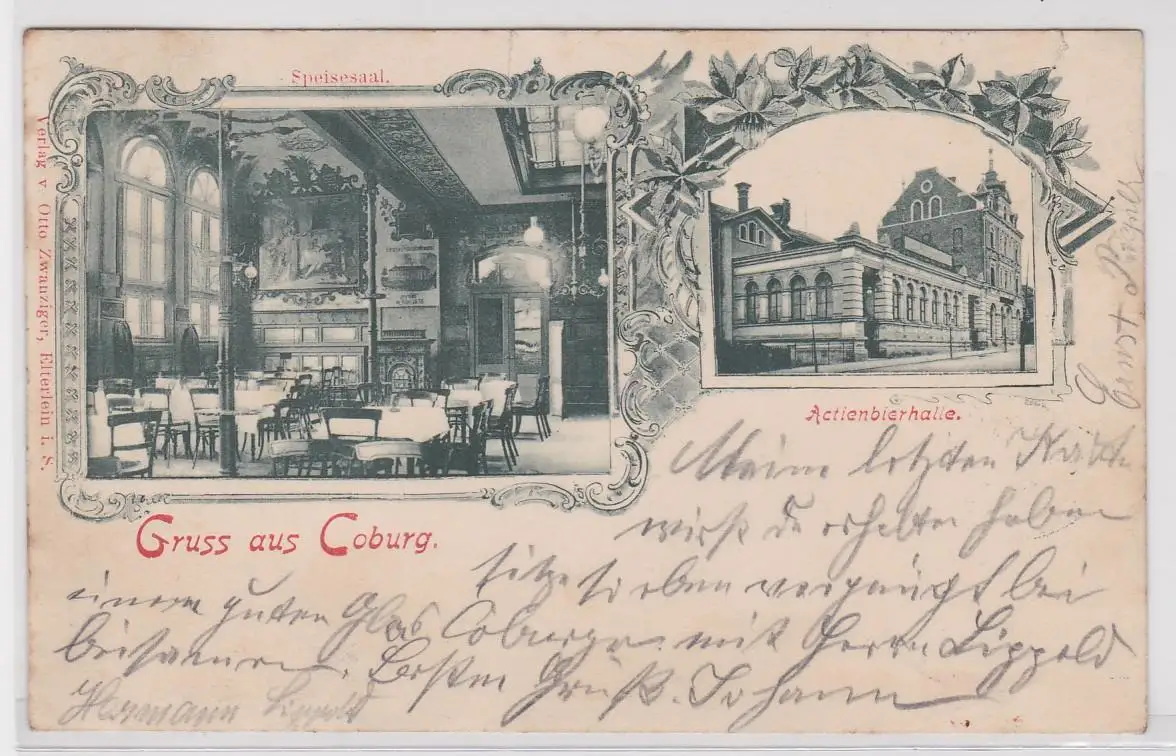 Speisesaal.
Verlag v. Otto Zwanziger, Elterlein i. S.
Actienbierhalle.
Gruss aus Coburg.
Meine letzten Karten
wirst du erhalten haben
sitze soeben vergnügt bei
einem guten Glas Coburger mit Herrn Lippold
beisammen. Besten Gruß. Johann
Hermann Lippold